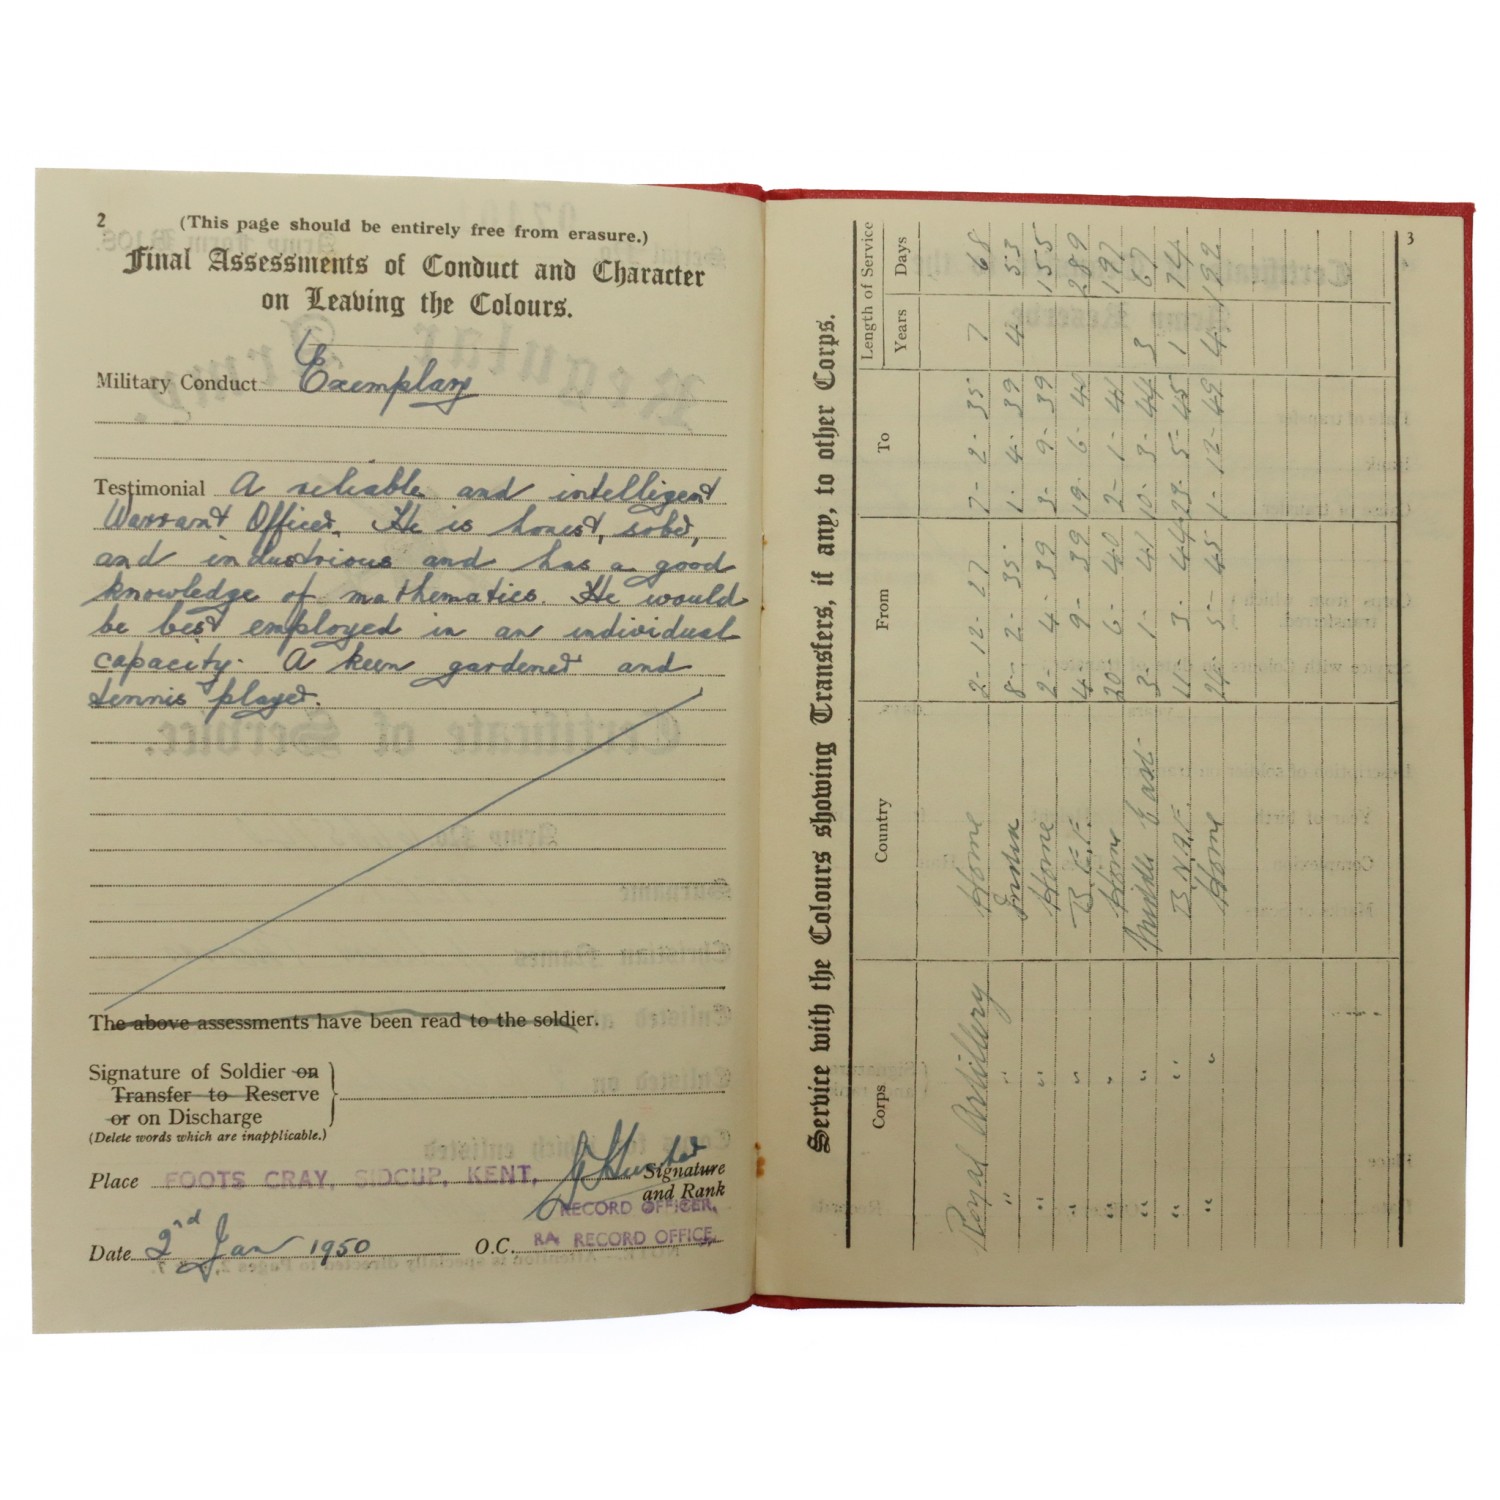 2
(This page should be entirely free from erasure.)
Final Assessments of Conduct and Character
on Leaving the Colours.
Military Conduct Exemplary
Testimonial A reliable and intelligent
Warrant Officer. He is honest, sober,
and industrious and has a good
knowledge of mathematics. He would
be best employed in an individual
capacity. A keen gardener and
tennis player.
The above assessments have been read to the soldier.
Signature of Soldier on
Transfer to Reserve
or on Discharge
(Delete words which are inapplicable.)
Place FOOTS CRAY, SIDCUP, KENT,
Signature
and Rank
RECORD OFFICER,
Date 2nd Jan 1950 O.C. RA RECORD OFFICE,
3
Service with the Colours showing Transfers, if any, to other Corps.
Corps Country From To Length of Service
Years Days
Royal Artillery Home 2-12-27 7-2-35 7 68
" " India 8-2-35 1-4-39 4 53
" " Home 2-4-39 3-9-39 155
" " B.E.F. 4-9-39 19-6-40 289
" " Home 20-6-40 2-1-41 197
" " Middle East 3-1-41 10-3-44 3 67
" " B.N.A.F. 11-3-44 23-5-45 1 74
" " Home 24-5-45 1-12-49 4 192